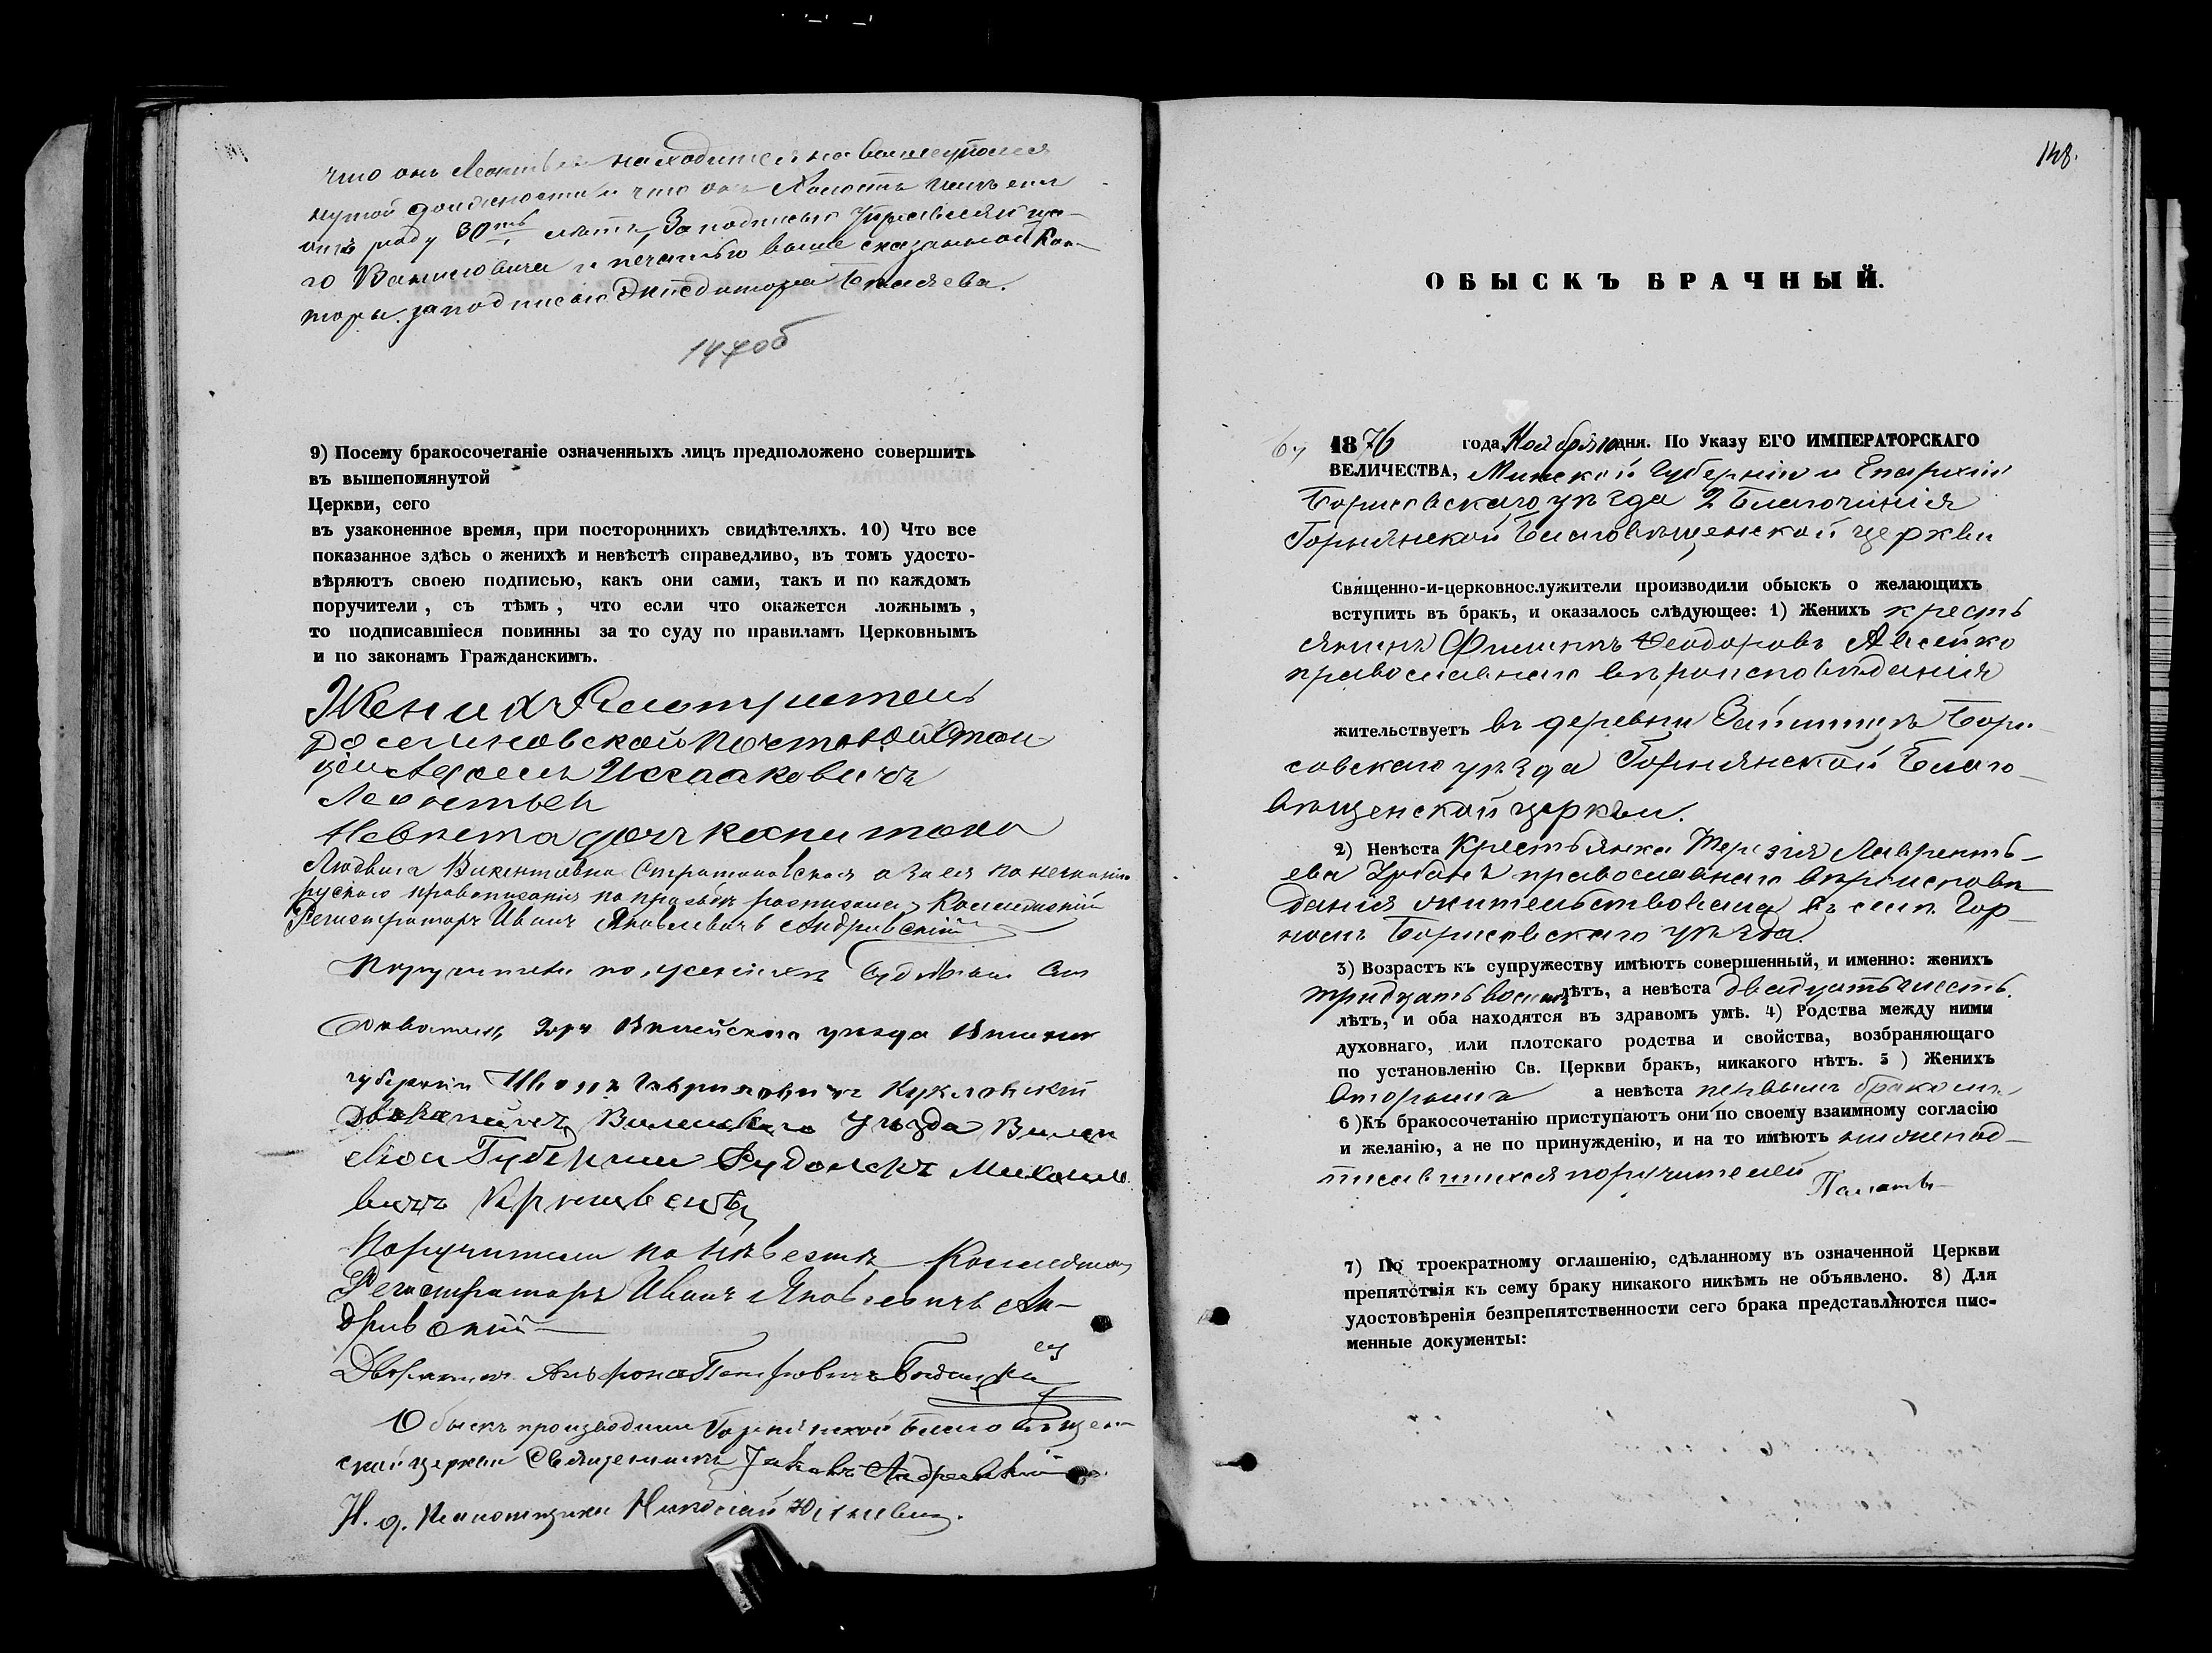 что онъ Леонтьев находится на вышеупомя
нутой должности и что онъ холостъ имѣетъ
отъ роду 30ть лѣтъ, За подписью Управляюща-
го и печатью выше сказанной Кон-
торы. за подписью
147об
9) Посему бракосочетаніе означенныхъ лицъ предположено совершить
въ вышепомянутой
Церкви, сего
въ узаконенное время, при постороннихъ свидѣтеляхъ. 10) Что все
показанное здѣсь о женихѣ и невѣстѣ справедливо, въ томъ удосто-
вѣряютъ своею подписью, какъ они сами, такъ и по каждомъ
поручители, съ тѣмъ, что если что окажется ложнымъ,
то подписавшіеся повинны за то суду по правиламъ Церковнымъ
и по законамъ Гражданскимъ.
Женихъ Смотритель
почтовой Стан
ціи
Леонтьев
Невѣста дочь капитана
Людвига Викентьевна а за нея по незнанію
рускаго правописанія по просьбѣ росписался Коллежскій
Регистраторъ Иванъ Яковлевичъ Андріевскій
Поручители по женихѣ
Вилейскаго уѣзда Виленск
губерніи Гавриловичъ
Дворянинъ Виленскаго Уѣзда Вилен
ской Губерніи Рудольфъ
вичъ
Поручители по Невѣстѣ Коллежскій
Регистраторъ Иванъ Яковлевичъ Ан-
дріевскій
Дворянинъ Петровичъ
Обыскъ производили Горнянской Благовѣщен-
ской церкви Священникъ Іаковъ Андріевскій
И. д. Псаломщика Николай
148.
ОБЫСКЪ БРАЧНЫЙ.
1876 года Ноября дня. По Указу ЕГО ИМПЕРАТОРСКАГО
ВЕЛИЧЕСТВА, Минской Губерніи и Епархіи
Борисовскаго уѣзда 2 Благочинія
Горнянской Благовѣщенской церкви
Священно-и-церковнослужители производили обыскъ о желающихъ
вступить въ бракъ, и оказалось слѣдующее: 1) Женихъ кресть
янинъ Филиппъ Ѳеодоровъ Авсейко
православнаго вѣроисповѣданія
жительствуетъ въ деревни Бори
совскаго уѣзда Горнянской Благо-
вѣщенской церкви.
2) Невѣста Крестьянка Терезія Лаврентъ-
ева Урбанъ православнаго вѣроисповѣ
данія жительствовала въ сел. Гор
номъ Борисовскаго уѣзда.
3) Возрастъ къ супружеству имѣютъ совершенный, и именно: женихъ
тридцать восемь лѣтъ, а невѣста двадцать шесть
лѣтъ, и оба находятся въ здравомъ умѣ. 4) Родства между ними
духовнаго, или плотскаго родства и свойства, возбраняющаго
по установленію Св. Церкви бракъ, никакого нѣтъ. 5 ) Женихъ
вторымъ а невѣста первымъ бракомъ
6 )Къ бракосочетанію приступаютъ они по своему взаимному согласію
и желанію, а не по принужденію, и на то имѣютъ нижепод-
писавшихся поручителей
7) По троекратному оглашенію, сдѣланному въ означенной Церкви
препятствія къ сему браку никакого никѣмъ не объявлено. 8) Для
удостовѣренія безпрепятственности сего брака представляются пис-
менные документы: